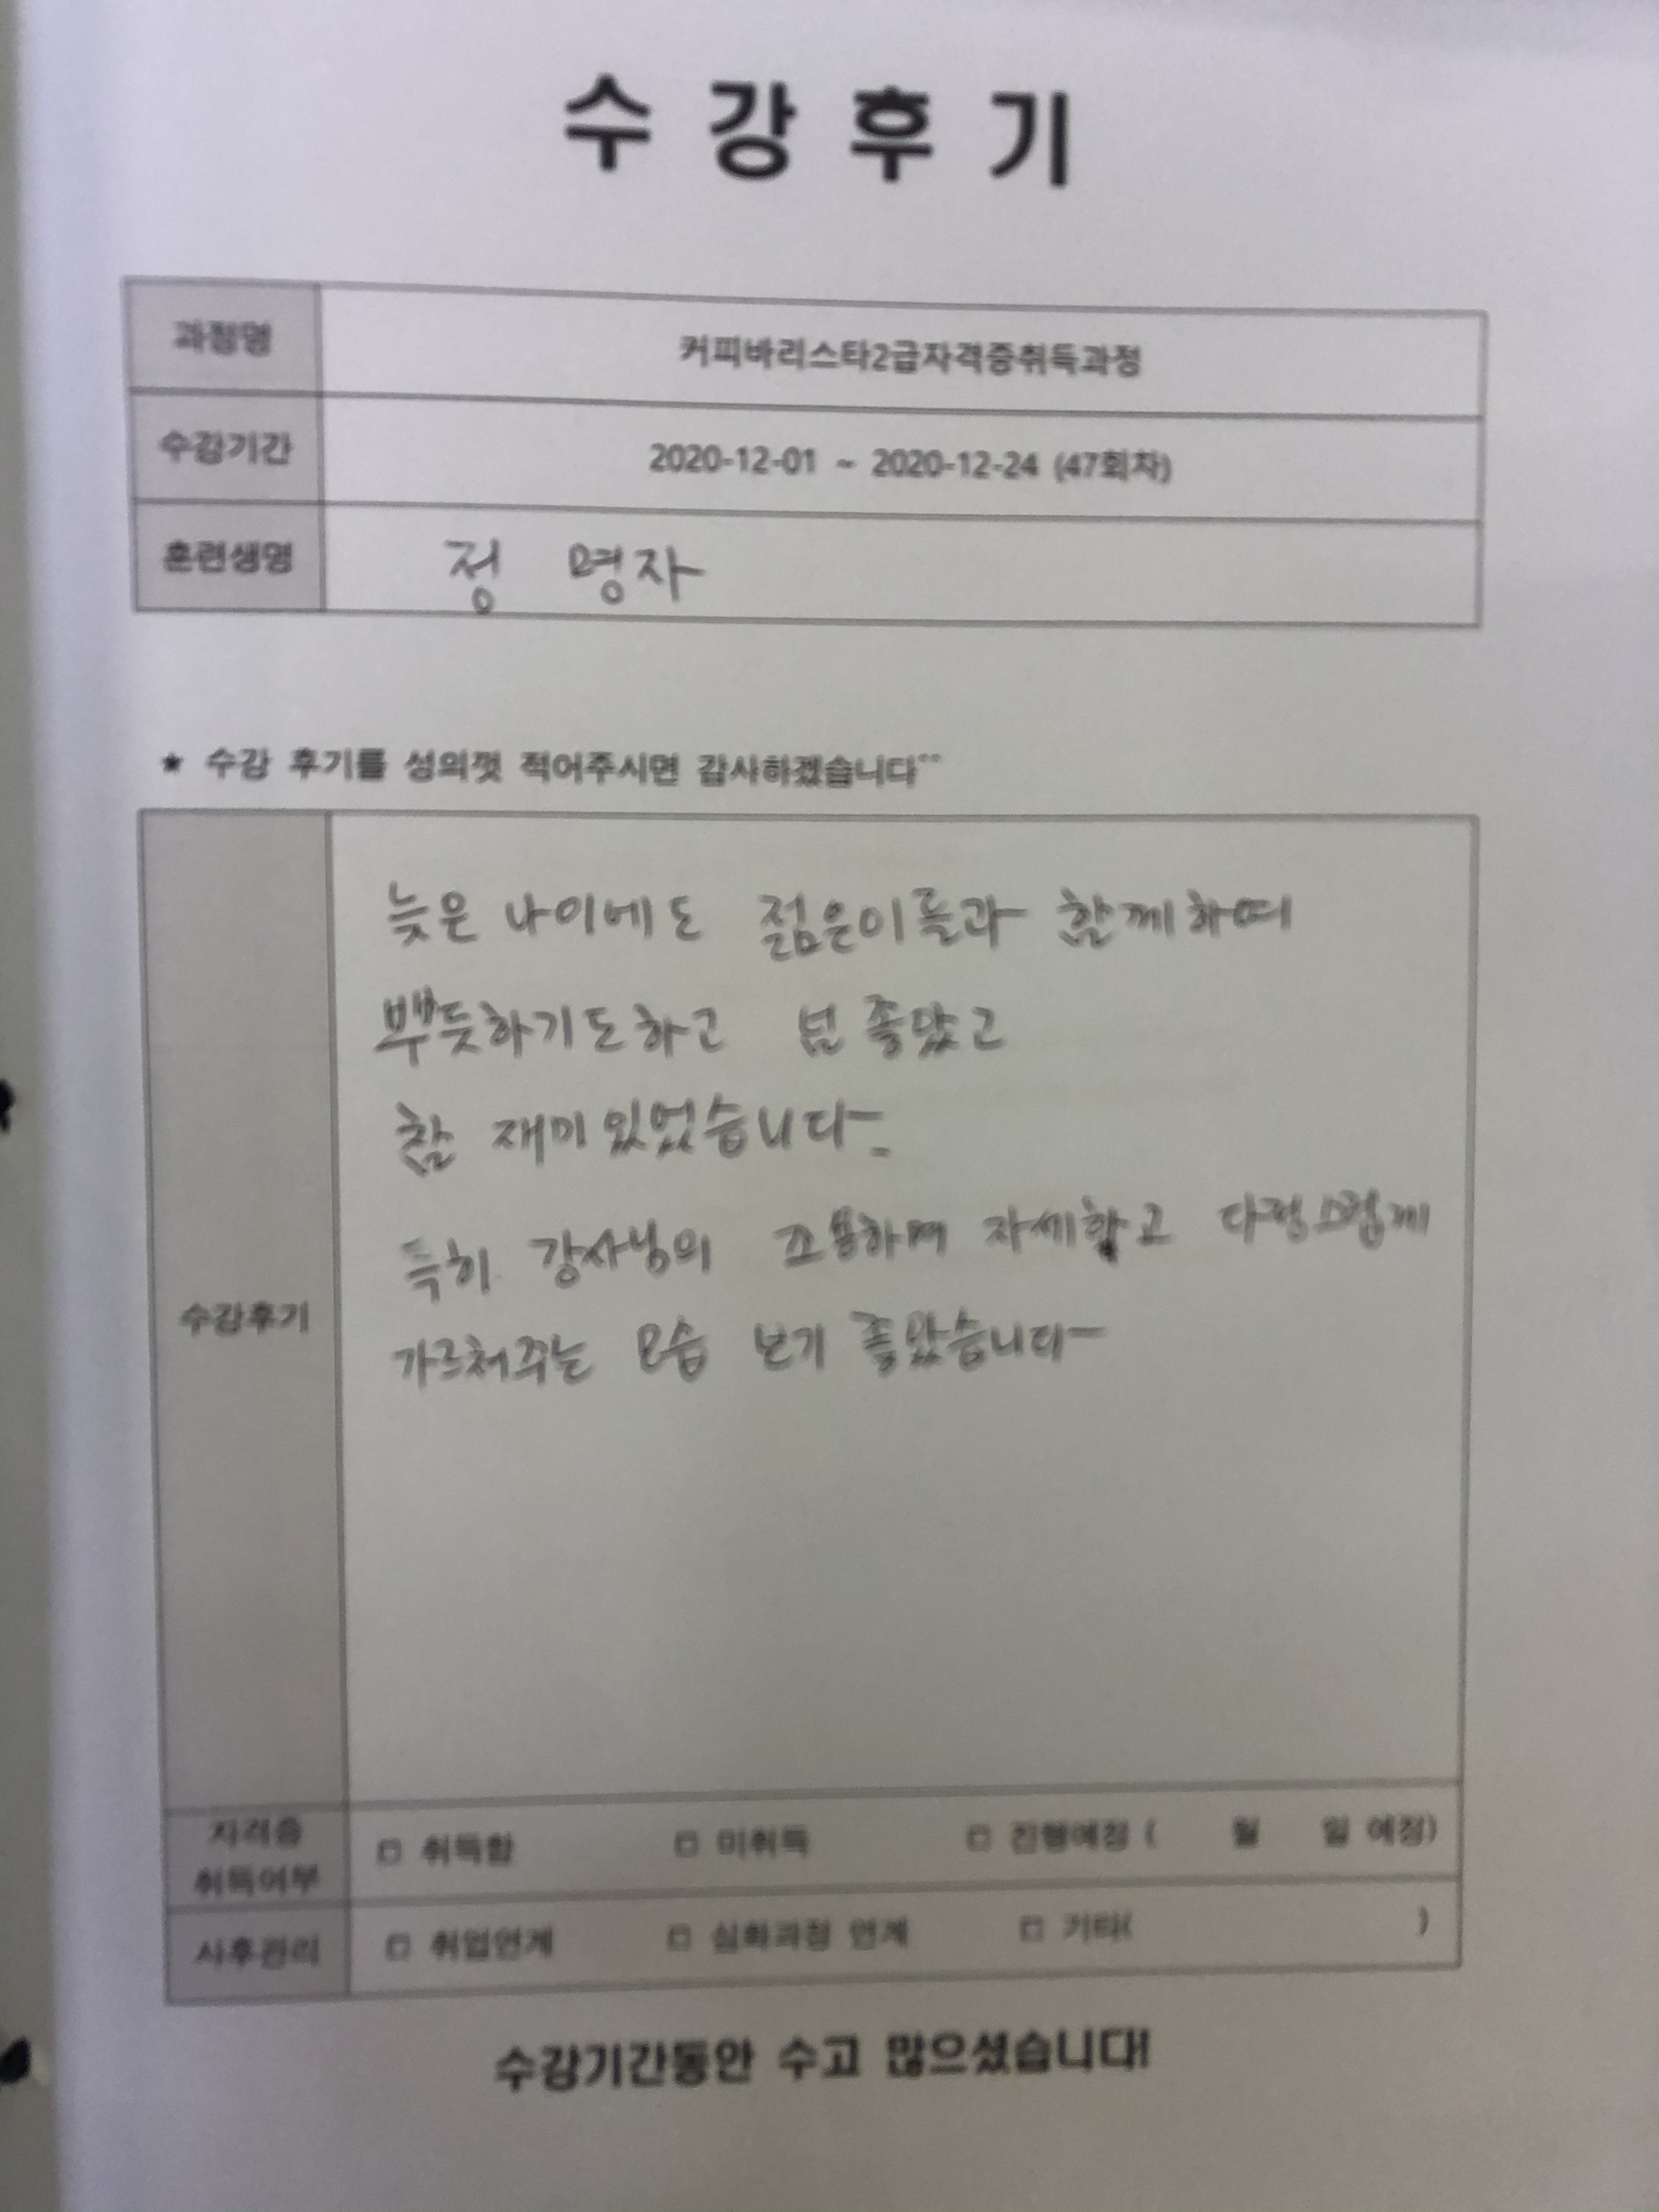 수강후기
과정명 커피바리스타2급자격증취득과정
수강기간 2020-12-01 ~ 2020-12-24 (47회차)
훈련생명 정 명자
★ 수강 후기를 성의껏 적어주시면 감사하겠습니다^^
늦은 나이에도 젊은이들과 함께하며
뿌듯하기도하고 넘 좋았고
참 재미있었습니다-
수강후기
특히 강사님의 조용하며 자세하고 다정스럽게
가르쳐주는 모습 보기 좋았습니다-
자격증 취득여부 □ 취득함 □ 미취득 □ 진행예정 ( 월 일 예정)
사후관리 □ 취업연계 □ 심화과정 연계 □ 기타( )
수강기간동안 수고 많으셨습니다!